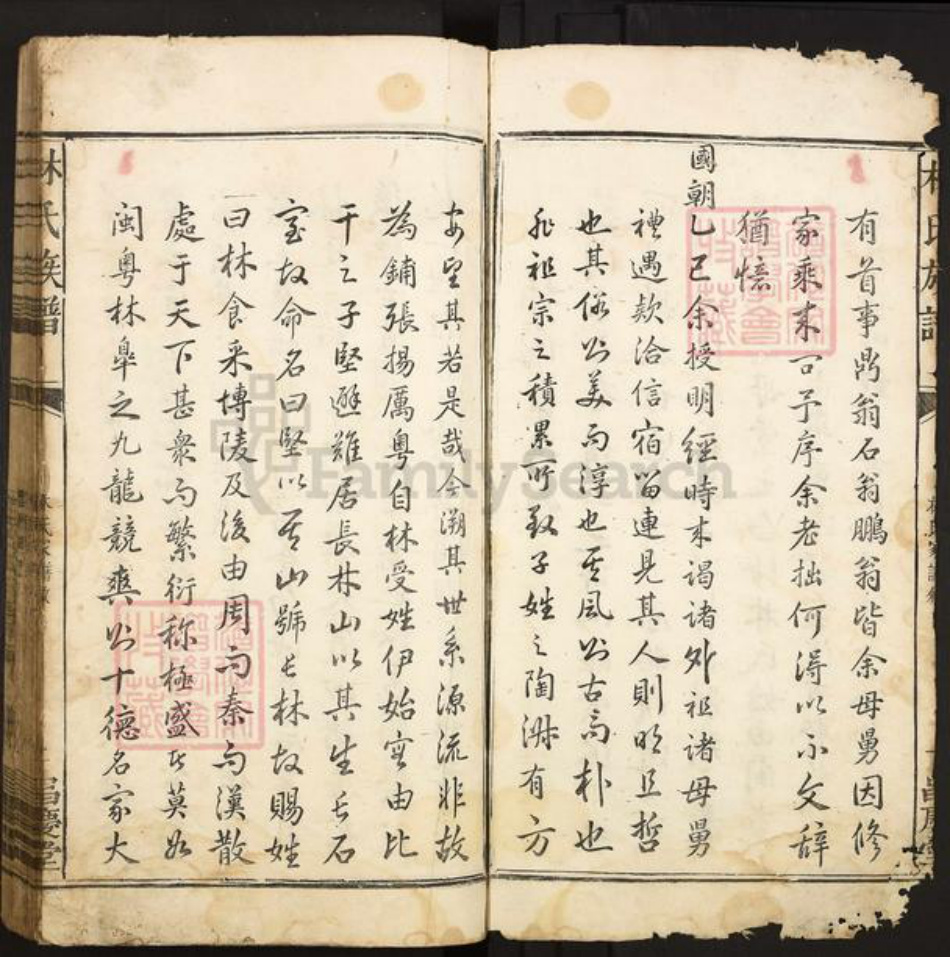 有首事鼎翁石翁鵬翁皆余母舅因修
家乘來予序余老拙何得以不文辭
猶憶
國朝乙巳余授明經時來謁諸外祖諸母舅
禮遇款洽信宿留連見其人則明且哲
也其俗以美而淳也其風以古而朴也
非祖宗之積累所致子姓之陶淑有方
安望其若是哉今溯其世系源流非故
為鋪張揚厲粵自林受姓伊始實由比
干之子堅避難居長林山以其生於石
室故命名曰堅以其山號長林故賜姓
曰林食采博陵及後由周而秦而漢散
處于天下甚眾而繁衍称極盛者莫如
閩粵林皐之九龍競爽以十德名家大
林氏族譜
昌慶堂
FamilySearch